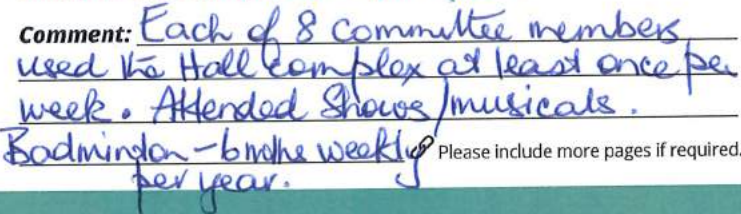 Comment: Each of 8 committee members
used the Hall complex at least once per
week. Attended Shows/musicals.
Badminton - 6 mths weekly Please include more pages if required.
per year.